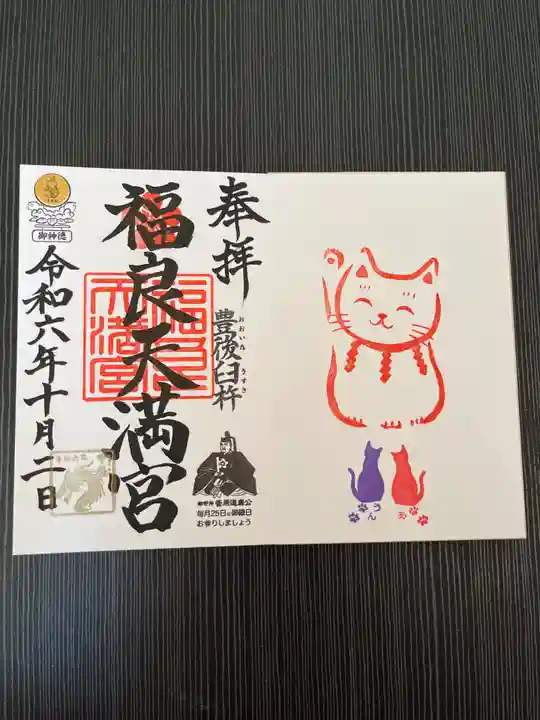 奉拝
豊後臼杵
おおいた
うすき
福良天満宮
御神徳
令和六年十月二日
御祭神 菅原道真公
毎月25日は御縁日
お参りしましょう
うん
あ